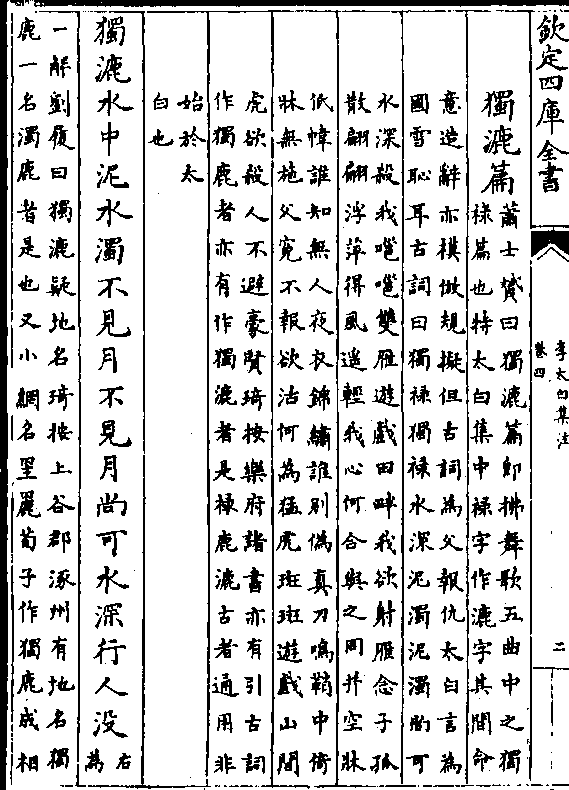 欽定四庫全書
李太白集注
卷四
二
獨漉篇
蕭士贇曰獨漉篇即拂舞歌五曲中之獨
祿篇也特太白集中祿字作漉字其間命
意造辭亦模倣規擬但古詞為父報仇太白言為
國雪恥耳古詞曰獨祿獨祿水深泥濁泥濁尚可
水深殺我嗈嗈雙雁遊戲田畔我欲射雁念子孤
散翩翩浮萍得風遥輕我心何合與之同并空牀
低幃誰知無人夜衣錦繡誰别偽真刀鳴鞘中倚
牀無施父寃不報欲活何為猛虎斑斑遊戲山間
虎欲殺人不避豪賢琦按樂府諸書亦有引古詞
作獨鹿者亦有作獨漉者是祿鹿漉古者通用非
始於太
白也
獨漉水中泥水濁不見月不見月尚可水深行人没
右
為
一解劉履曰獨漉疑地名琦按上谷郡涿州有地名獨
鹿一名濁鹿者是也又小網名罜麗荀子作獨鹿成相